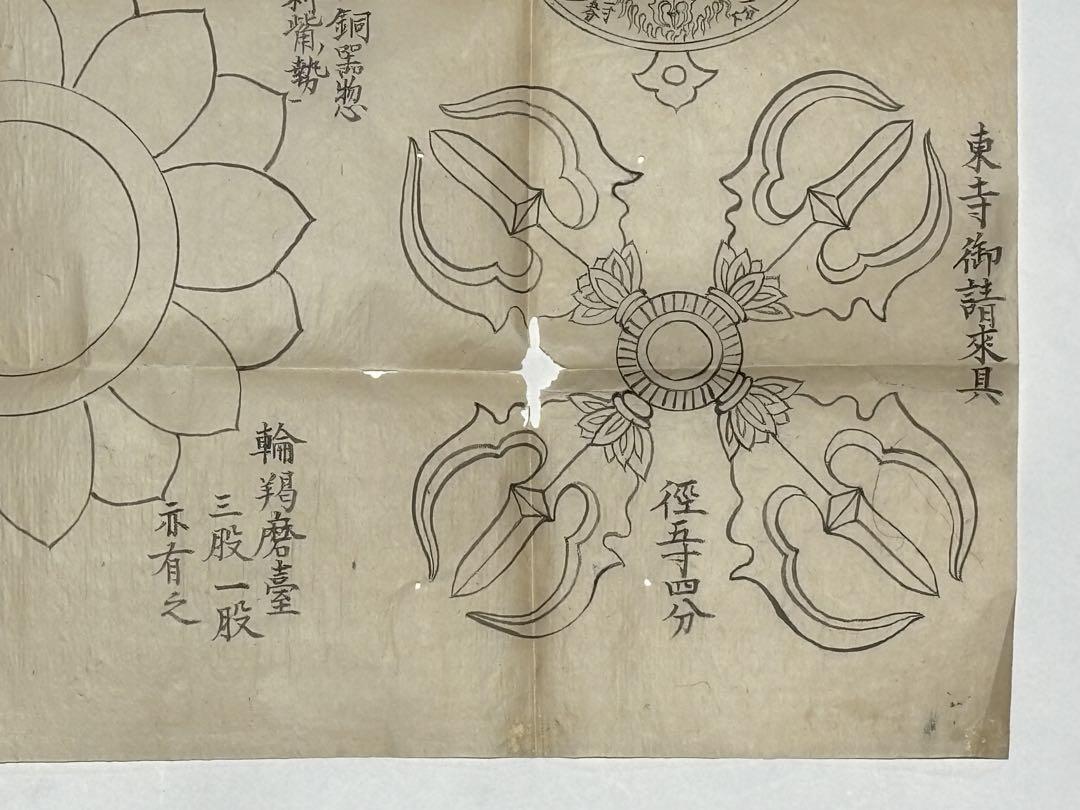 東寺御請來具
徑五寸四分
銅器惣
觜勢
輪羯磨臺
三股一股
亦有之